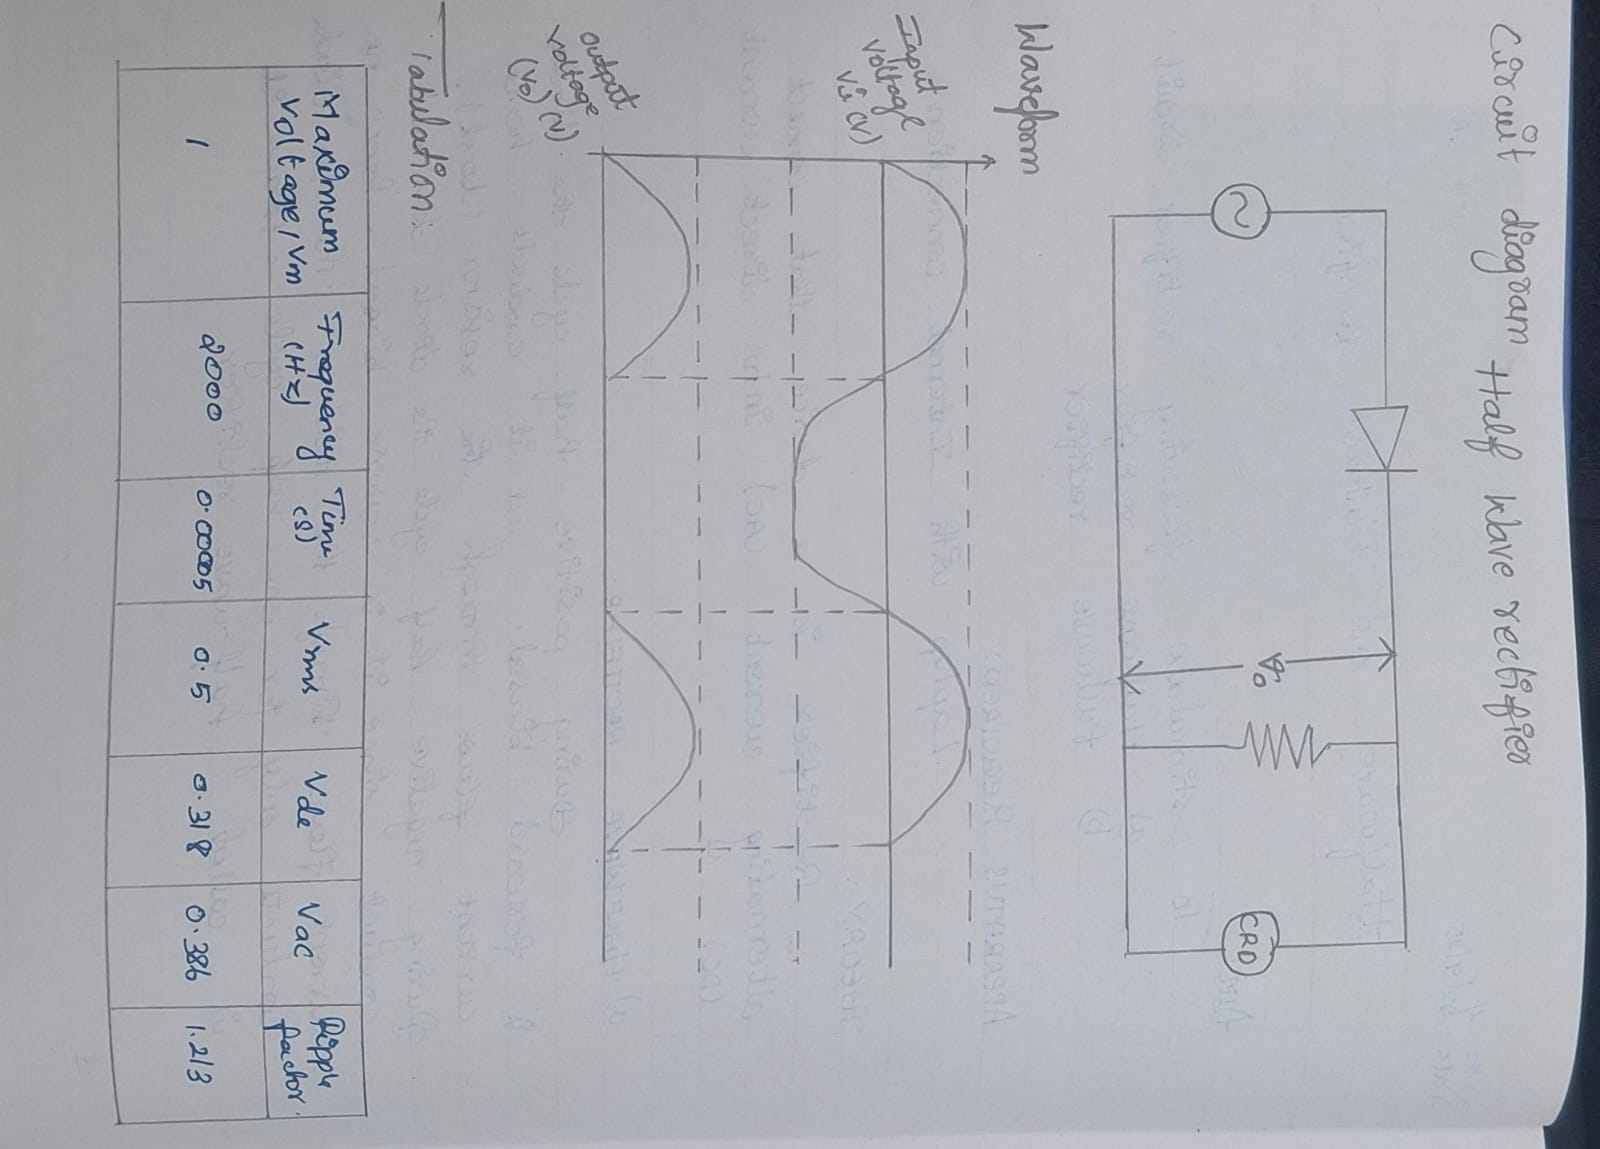 Circuit diagram Half Wave rectifier
V0
CRO
Waveform
Input
voltage
Vi (V)
output
voltage
(V0) (V)
Tabulation
Maximum
Voltage, Vm
Frequency
(Hz)
Time
(s)
Vrms
Vdc
Vac
Ripple
factor.
1
2000
0.00005
0.5
0.318
0.386
1.213